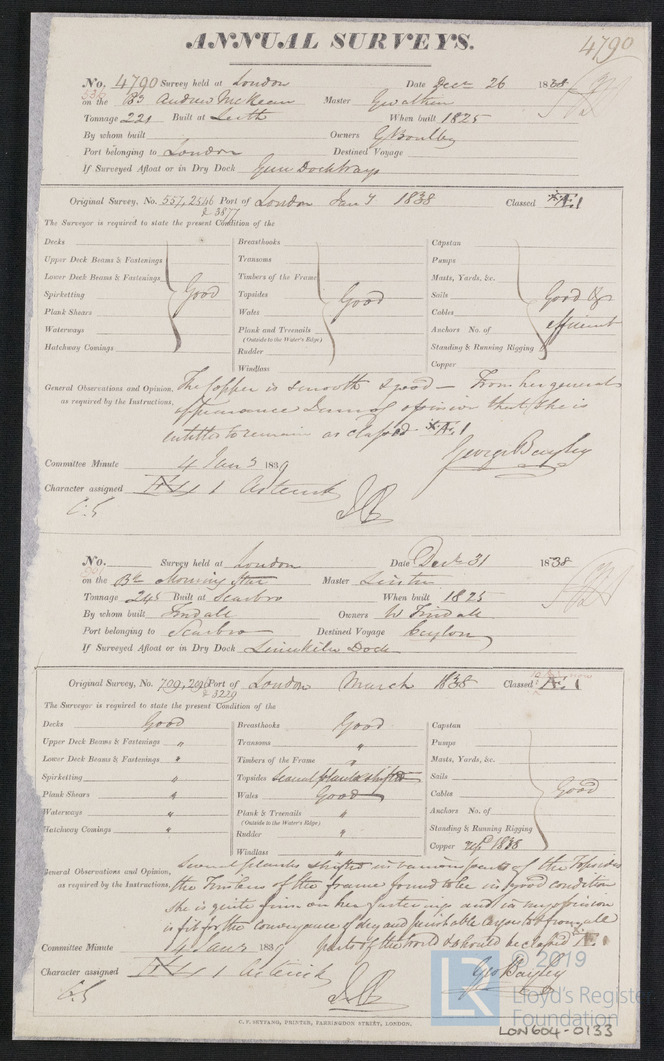 ANNUAL SURVEYS.
4790
No. 4790 Survey held at London Date Decr 26 1838
on the Bg Andrew McKean Master Gwatkin
Tonnage 221 Built at Leith When built 1825
By whom built Owners G Boulby
Port belonging to London Destined Voyage
If Surveyed Afloat or in Dry Dock Gun Dock ways
Original Survey, No. 557, 2546 Port of London Jan 7 1838 Classed *Æ1
& 3877
The Surveyor is required to state the present Condition of the
Decks Breasthooks Capstan
Upper Deck Beams & Fastenings Transoms Pumps
Lower Deck Beams & Fastenings Timbers of the Frame Masts, Yards, &c.
Spirketting Good Topsides Good Sails Good &
Plank Shears Wales Cables efficient
Waterways Plank and Treenails Anchors No. of
(Outside to the Water's Edge)
Hatchway Comings Rudder Standing & Running Rigging
Windlass Copper
General Observations and Opinion, The Copper is smooth & good — From her general
as required by the Instructions, appearance I am of opinion that She is
entitled to remain as classed *Æ1
George Bayley
Committee Minute 4 Jany 1839
Character assigned 1 Asterisk
C.S
No. Survey held at London Date Decr 31 1838
on the Bk Morning Star Master Linton
Tonnage 245 Built at Scarbro When built 1825
By whom built Tindall Owners W Tindall
Port belonging to Scarbro Destined Voyage Ceylon
If Surveyed Afloat or in Dry Dock Limekiln Dock
Original Survey, No. 709, Port of London March 1838 Classed Æ1
& 3229
The Surveyor is required to state the present Condition of the
Decks Good Breasthooks Good Capstan
Upper Deck Beams & Fastenings " Transoms " Pumps
Lower Deck Beams & Fastenings " Timbers of the Frame " Masts, Yards, &c.
Spirketting " Topsides Several planks shifted Sails
Plank Shears " Wales Good Cables Good
Waterways " Plank & Treenails " Anchors No. of
(Outside to the Water's Edge)
Hatchway Comings " Rudder " Standing & Running Rigging
Windlass " Copper 1838
General Observations and Opinion, Several planks shifted in various parts of the Topsides
as required by the Instructions, the Timbers of the frame found to be in good condition
She is quite firm in her fastenings and in my opinion
is fit for the conveyance of dry and perishable Cargoes to & from all
Committee Minute 4 Jany 1839 parts of the World & should be classed Æ1
Character assigned 1 Asterisk Geo Bayley
C.S
C. F. SEYFANG, PRINTER, FARRINGDON STREET, LONDON.
LR © 2019
Lloyd's Register
Foundation
LON604-0133